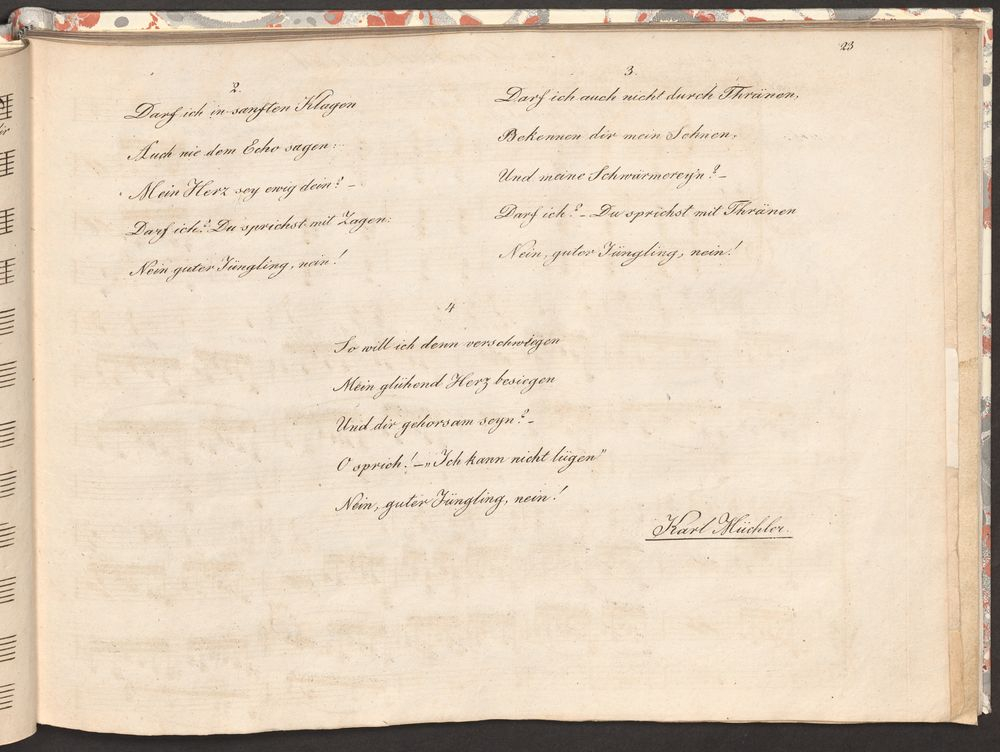 23
2.
Darf ich in sanften Klagen
Auch nie dem Echo sagen:
Mein Herz sey ewig dein? –
Darf ich? Du sprichst mit Zagen:
Nein guter Jüngling, nein!
3.
Darf ich auch nicht durch Thränen,
Bekennen dir mein Sehnen,
Und meine Schwärmerey'n? –
Darf ich? – Du sprichst mit Thränen
Nein, guter Jüngling, nein!
4
So will ich denn verschwiegen
Mein glühend Herz besiegen
Und dir gehorsam seyn? –
O sprich! – „Ich kann nicht lügen"
Nein, guter Jüngling, nein!
Karl Müchler.